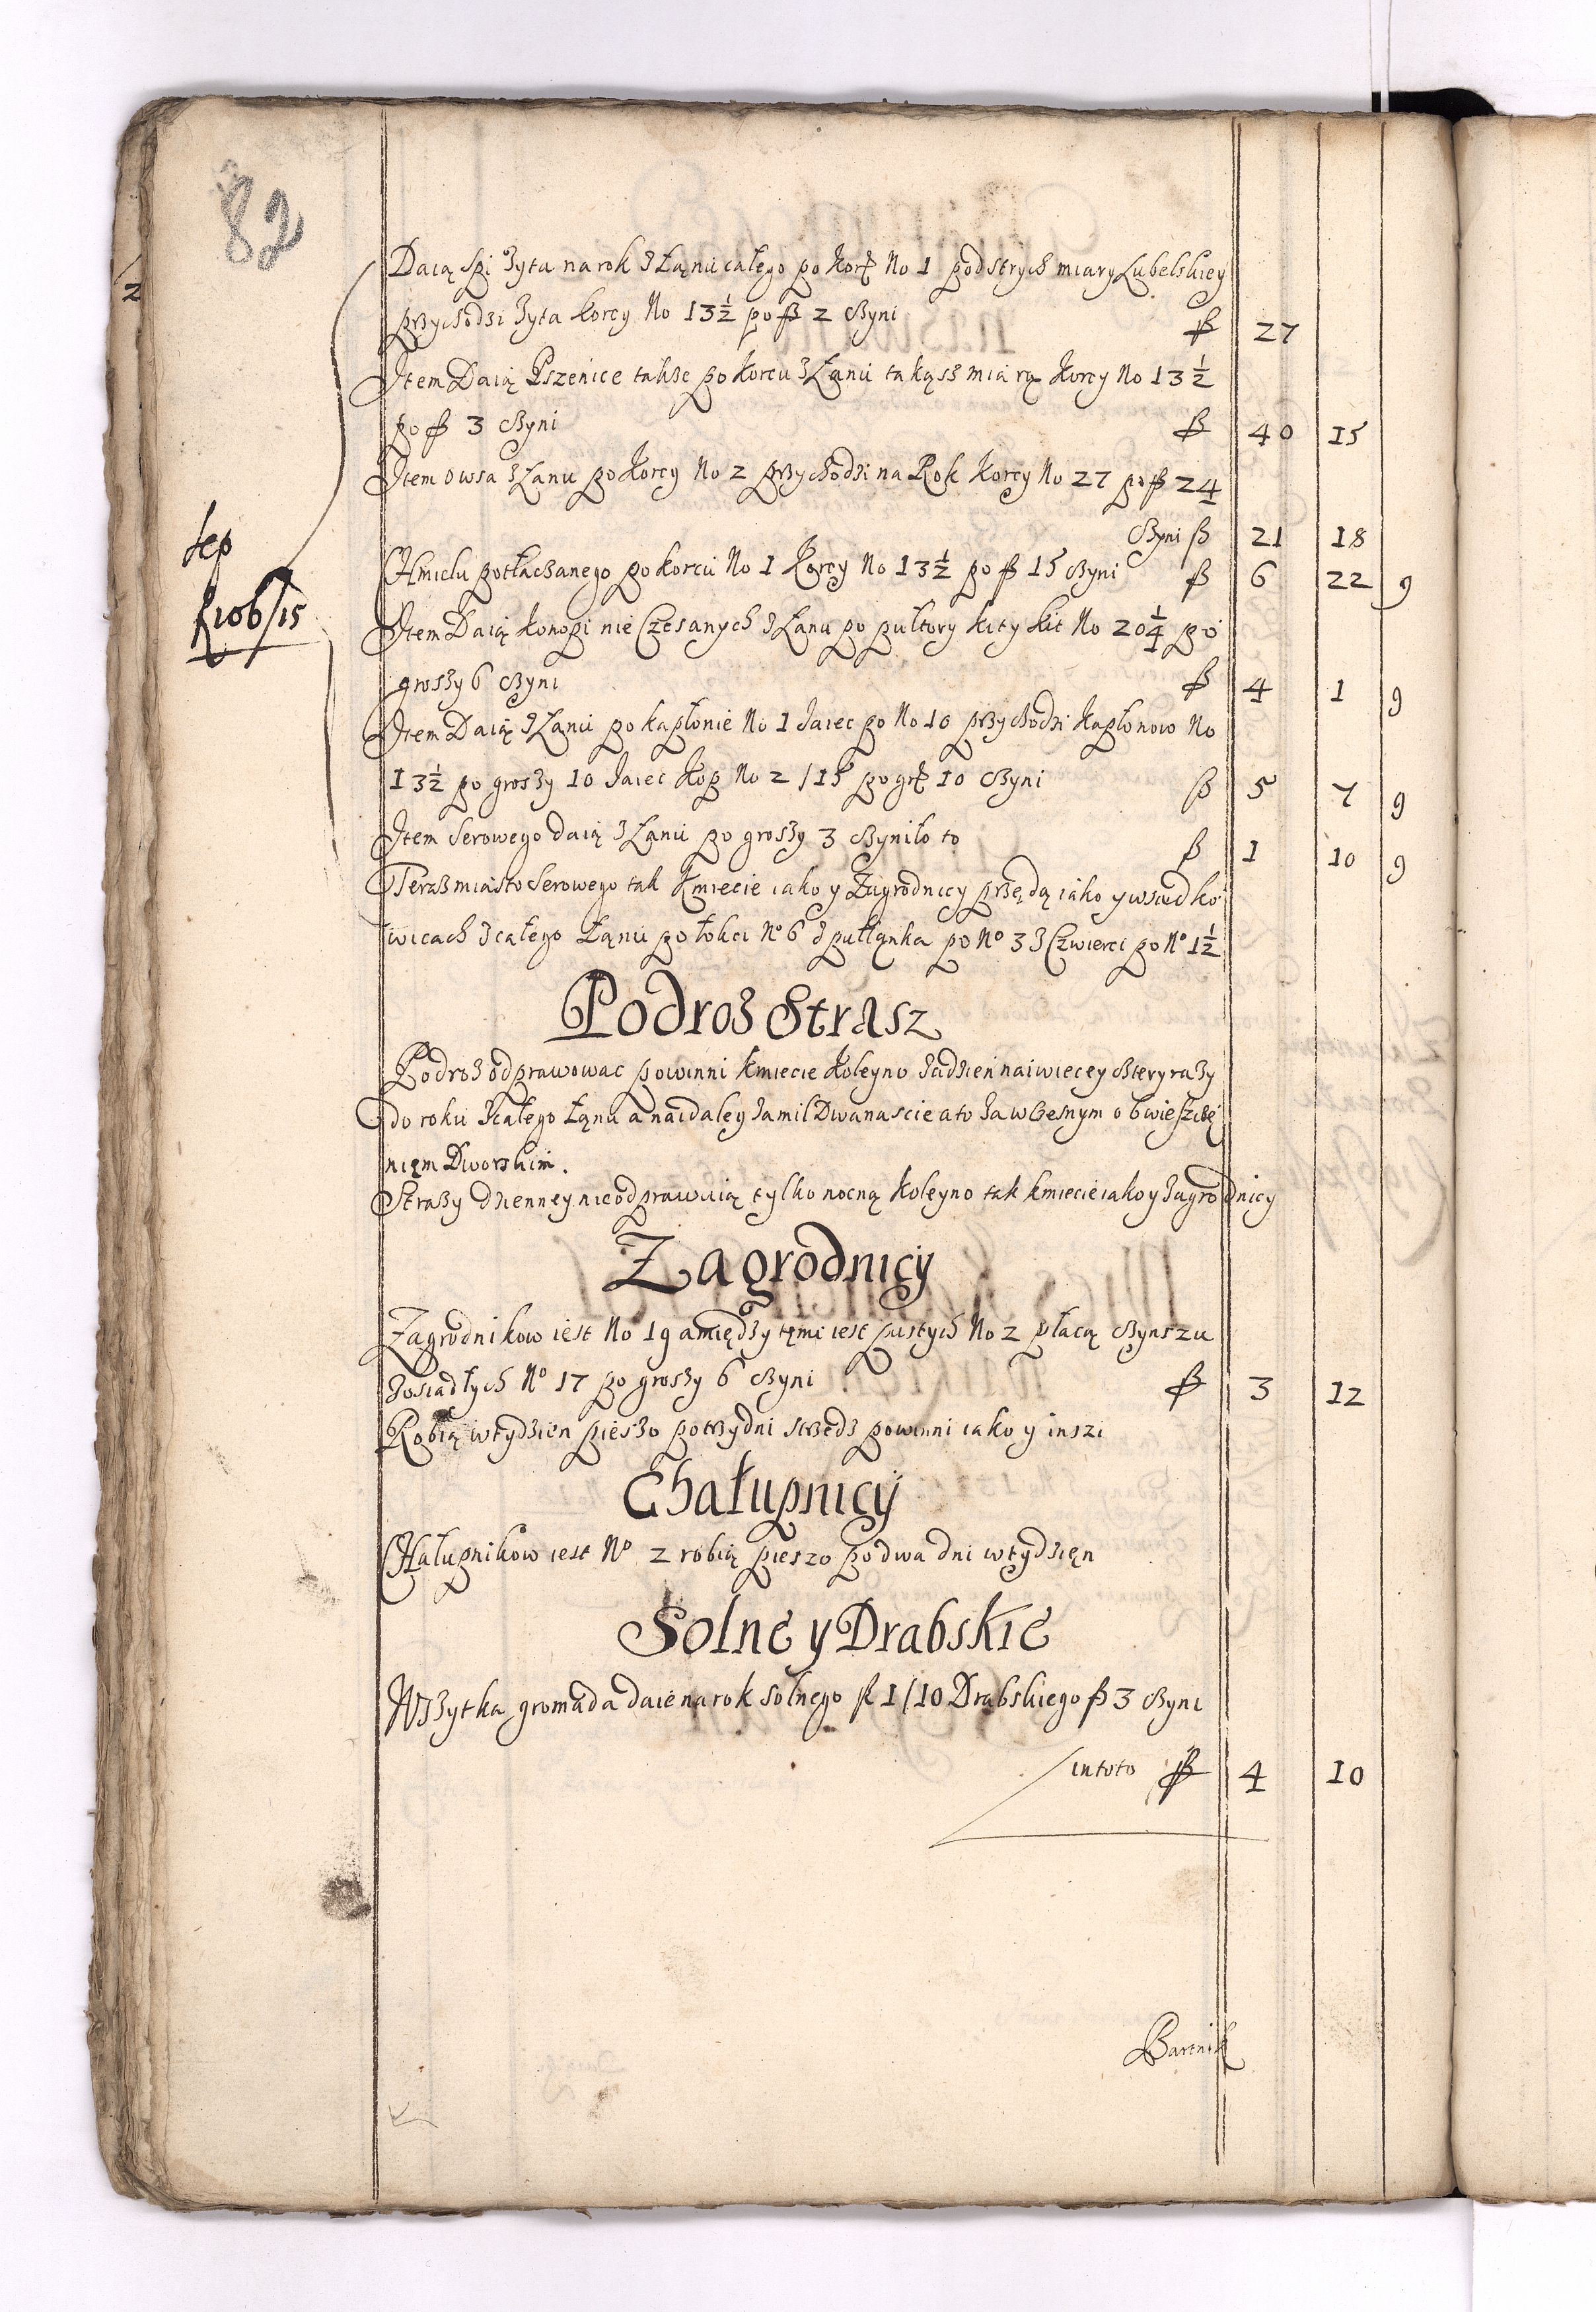 82
Daią Spi Zyta na rok z Łanu całego po Korc No 1 pod strych miary Lubelskiey
przychodzi Zyta korcy No 13½ po fl 2 czyni fl 27
Item Daią Pszenice takze po Korcu z Łanu takąsz miarą Korcy No 13½
po fl 3 czyni fl 40 15
Item owsa z Łanu po Korcy No 2 przychodzi na Rok Korcy No 27 po fl 24
czyni fl 21 18
Chmielu potłaczanego po korcu No 1 Korcy No 13½ po fl 15 czyni fl 6 22 9
Item Daią konopi nie Czesanych z Łanu po pułtory kity kit No 20¼ po
groszy 6 czyni fl 4 1 9
Item Daią z Łanu po kapłonie No 1 Jaiec po No 10 przychodzi Kapłonow No
13½ po groszy 10 Jaiec Kop No 2/15 po gr 10 czyni fl 5 7 9
Item Serowego daią z Łanu po groszy 3 czyniło to fl 1 10 9
Sep
fl 106/15
Teraz miasto Serowego tak Kmiecie iako y Zagrodnicy przędą iako y w Siedko
wicach z całego Łanu po łokci No 6 z pułłanka po No 3 z Czwierci po No 1½
Podroz Strasz
Podroz odprawowac powinni Kmiecie Koleyno Zadzień naiwiecey cztery razy
do roku z całego Łanu a naidaley Zamil Dwanascie a to Za wczesnym obwieszcze
nięm Dworskim.
Strazy dzienney nie odprawuią tylko nocną Koleyno tak kmiecie iako y Zagrodnicy
Zagrodnicy
Zagrodnikow iest No 19 a między tęmi iest pustych No 2 płacą czynszu
Zosiadłych No 17 po groszy 6 czyni fl 3 12
Robią w tydzien pieszo po trzy dni strzedz powinni iako y inszi
Chałupnicy
Chałupnikow iest No 2 robią pieszo po dwa dni w tydzięn
Solne y Drabskie
Wszytka gromada daie na rok Solnego fl 1/10 Drabskiego fl 3 czyni
in toto fl 4 10
Bartnik